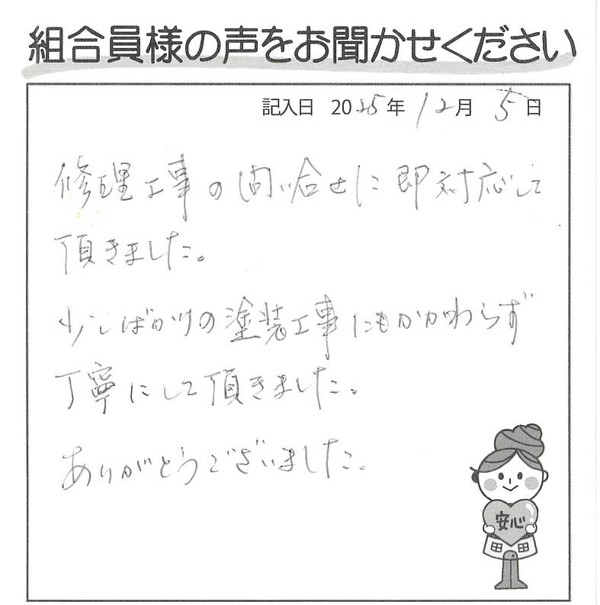 組合員様の声をお聞かせください
記入日 2025年 12月 5日
修理工事の問い合せに即対応して
頂きました。
少しばかりの塗装工事にもかかわらず
丁寧にして頂きました。
ありがとうございました。
安心